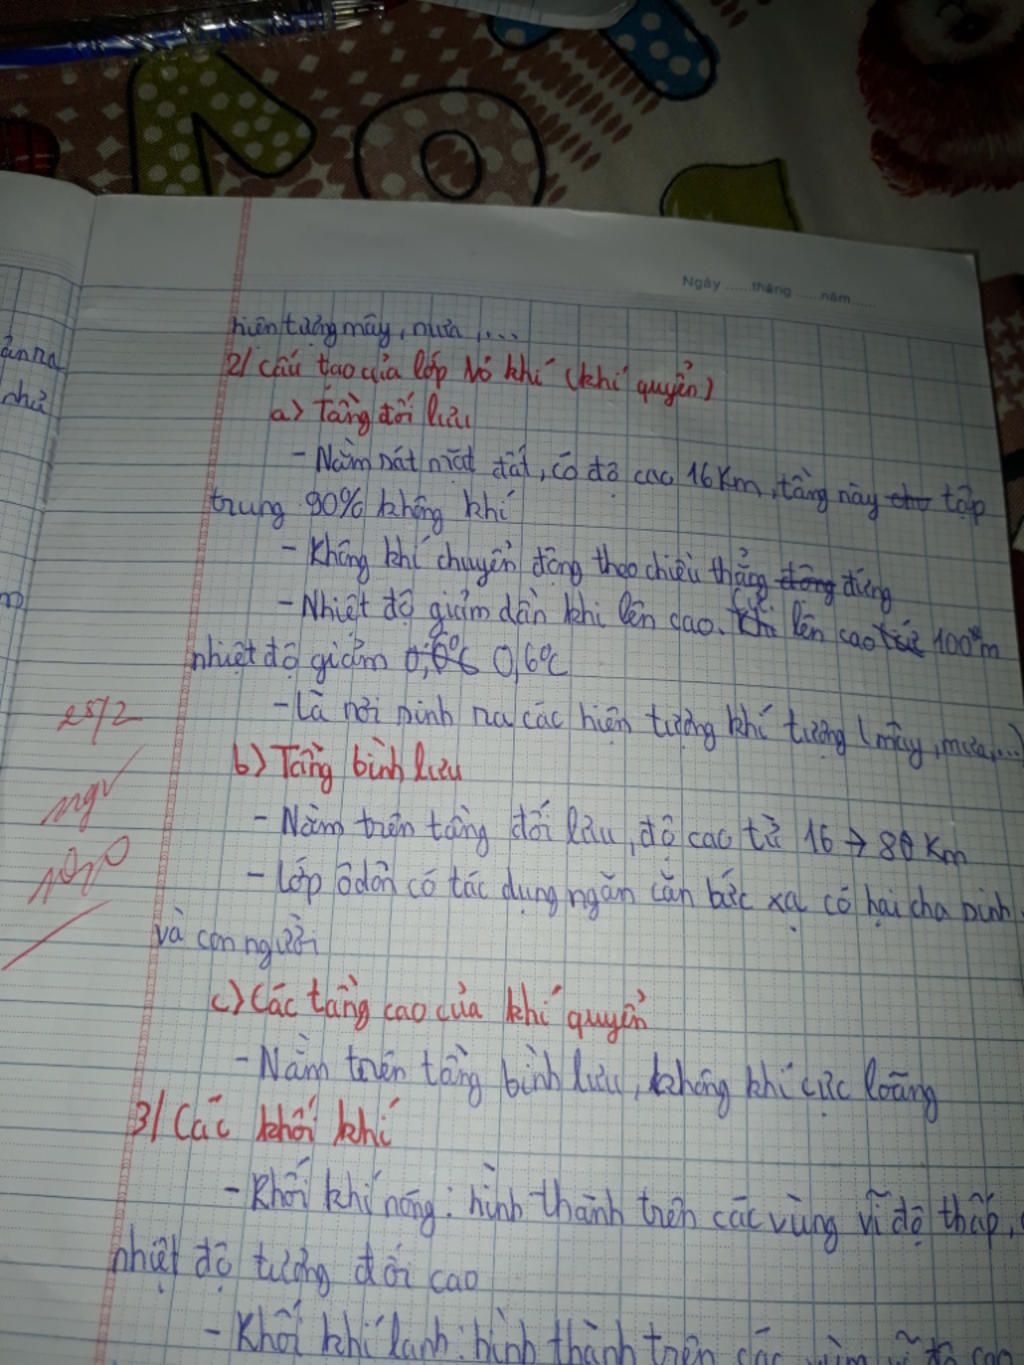 Ngày ......tháng ......năm ......
hiện tượng mây, mưa, ...
2/ Cấu tạo của lớp vỏ khí (khí quyển)
a) Tầng đối lưu
- Nằm sát mặt đất, có độ cao 16 Km, tầng này cho tập
trung 90% không khí
- Không khí chuyển động theo chiều thẳng đông đứng
- Nhiệt độ giảm dần khi lên cao. Cứ lên cao 100m
nhiệt độ giảm 0,6°C 0,6°C
- Là nơi sinh ra các hiện tượng khí tượng (mây, mưa,...)
b) Tầng bình lưu
- Nằm trên tầng đối lưu, độ cao từ 16 → 80 Km
- Lớp ôdôn có tác dụng ngăn cản bức xạ có hại cho sinh
và con người
c) Các tầng cao của khí quyển
- Nằm trên tầng bình lưu, không khí cực loãng
3/ Các khối khí
- Khối khí nóng: hình thành trên các vùng vĩ độ thấp,
nhiệt độ tương đối cao
- Khối khí lạnh: hình thành trên các vùng vĩ độ cao
25/2